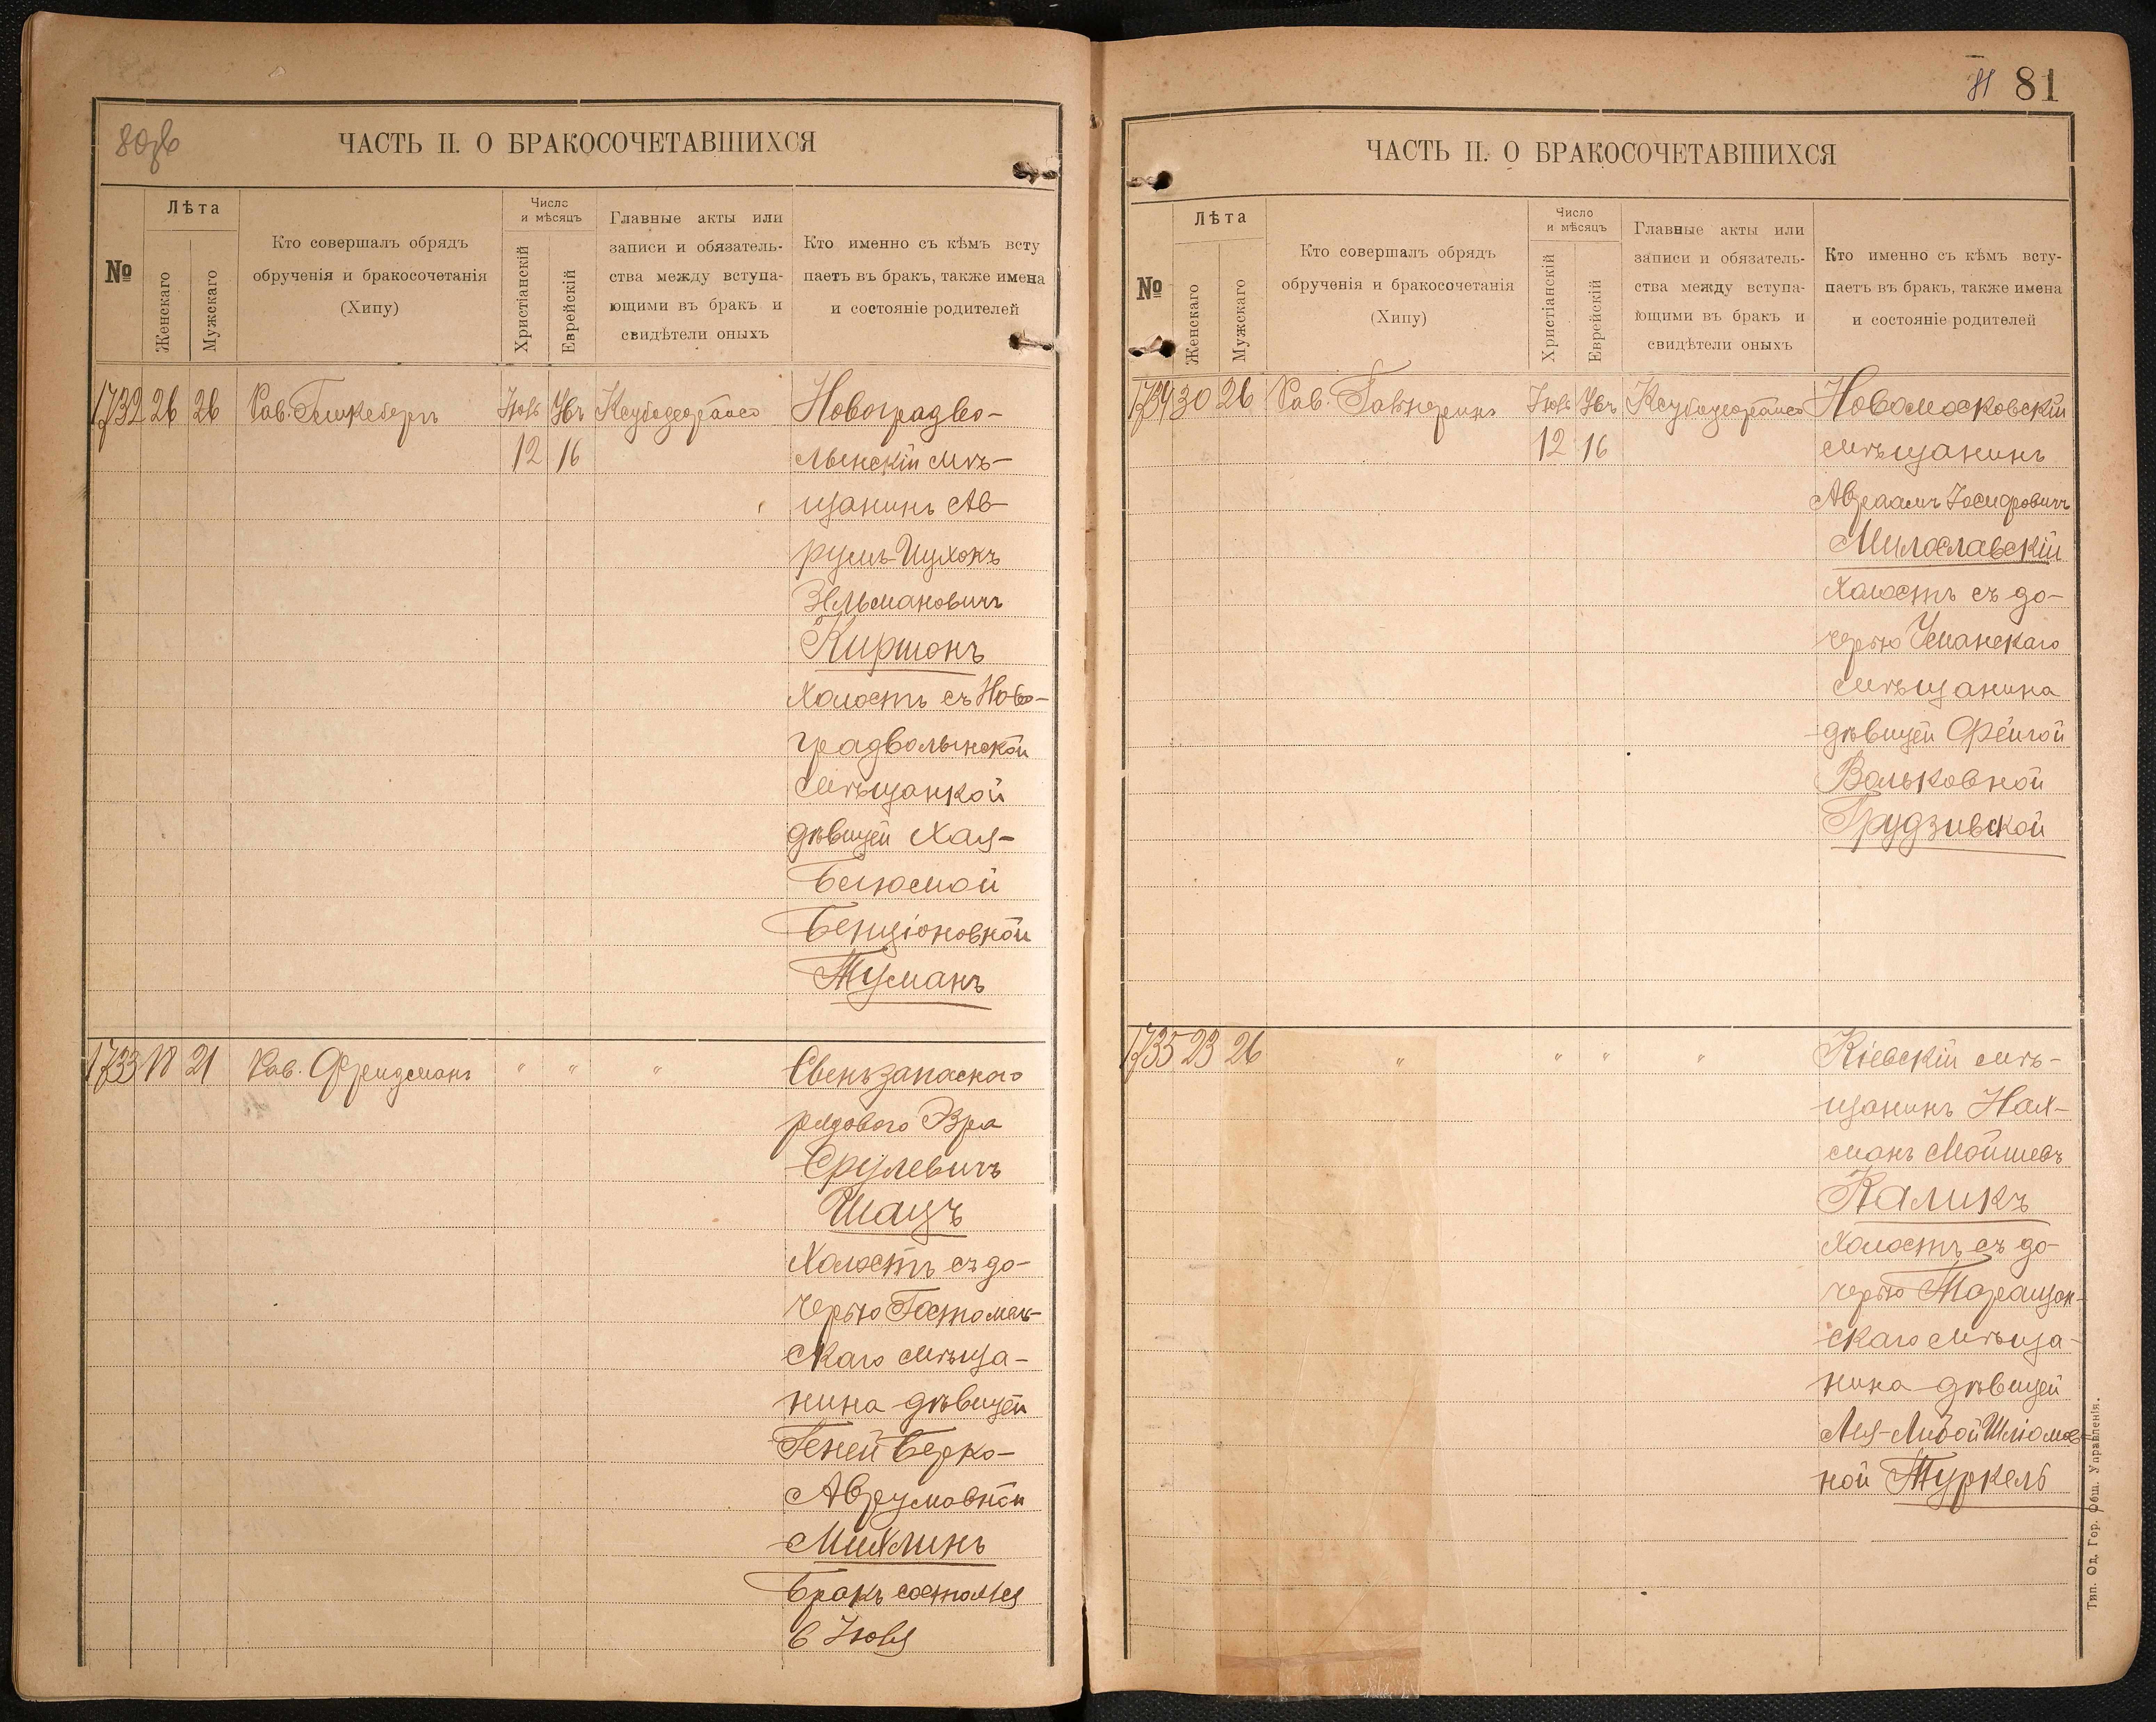 80об
ЧАСТЬ II. О БРАКОСОЧЕТАВШИХСЯ
№
Лѣта
Женскаго
Мужскаго
Кто совершалъ обрядъ
обрученія и бракосочетанія
(Хипу)
Число
и мѣсяцъ
Христіанскій
Еврейскій
Главные акты или
записи и обязатель-
ства между вступа-
ющими въ бракъ и
свидѣтели оныхъ
Кто именно съ кѣмъ всту
паетъ въ бракъ, также имена
и состояніе родителей
1732 26 26 Рав. Іюнь
12 16
Новоградво-
лынскій мѣ-
щанинъ Ав-
румъ-Ицхокъ
Зельмановичъ
Киршонъ
холостъ съ Ново-
градволынской
мѣщанкой
дѣвицей Хая-
Бенціоновной
Туманъ
1733 18 21 Рав. Фридманъ " " "
рядового Эзра
Срулевичъ
Шацъ
Холостъ съ до-
черью Гостомель-
скаго мѣща-
нина дѣвицей
Геней Берко-
Аврумовной
Михлинъ
Бракъ состоялся
6 Іюня
81 81
ЧАСТЬ II. О БРАКОСОЧЕТАВШИХСЯ
№
Лѣта
Женскаго
Мужскаго
Кто совершалъ обрядъ
обрученія и бракосочетанія
(Хипу)
Число
и мѣсяцъ
Христіанскій
Еврейскій
Главные акты или
записи и обязатель-
ства между вступа-
ющими въ бракъ и
свидѣтели оныхъ
Кто именно съ кѣмъ всту-
паетъ въ бракъ, также имена
и состояніе родителей
1734 30 26 Рав. Іюнь Новомосковскій
12 16 мѣщанинъ
Авраамъ Іосифовичъ
Милославскій
холостъ съ до-
черью Уманскаго
мѣщанина
дѣвицей Фейгой
Вольковной
Грудзивской
1735 23 26 " " " " Кіевскій мѣ-
щанинъ Нах-
манъ Мойшевъ
Каликъ
холостъ съ до-
черью Таращан-
скаго мѣща-
нина дѣвицей
Лея-Либой Шліомов-
ной Туркель
Тип. Од. Гор. Общ. Управленія.